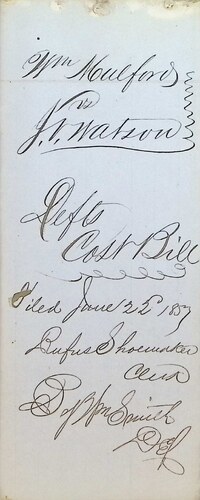 Wm Mulford
vs
J. V. Watson
Defts
Cost Bill
Filed June 22d 1857
Rufus Shoemaker
Clerk
By Wm Smith
D. C.